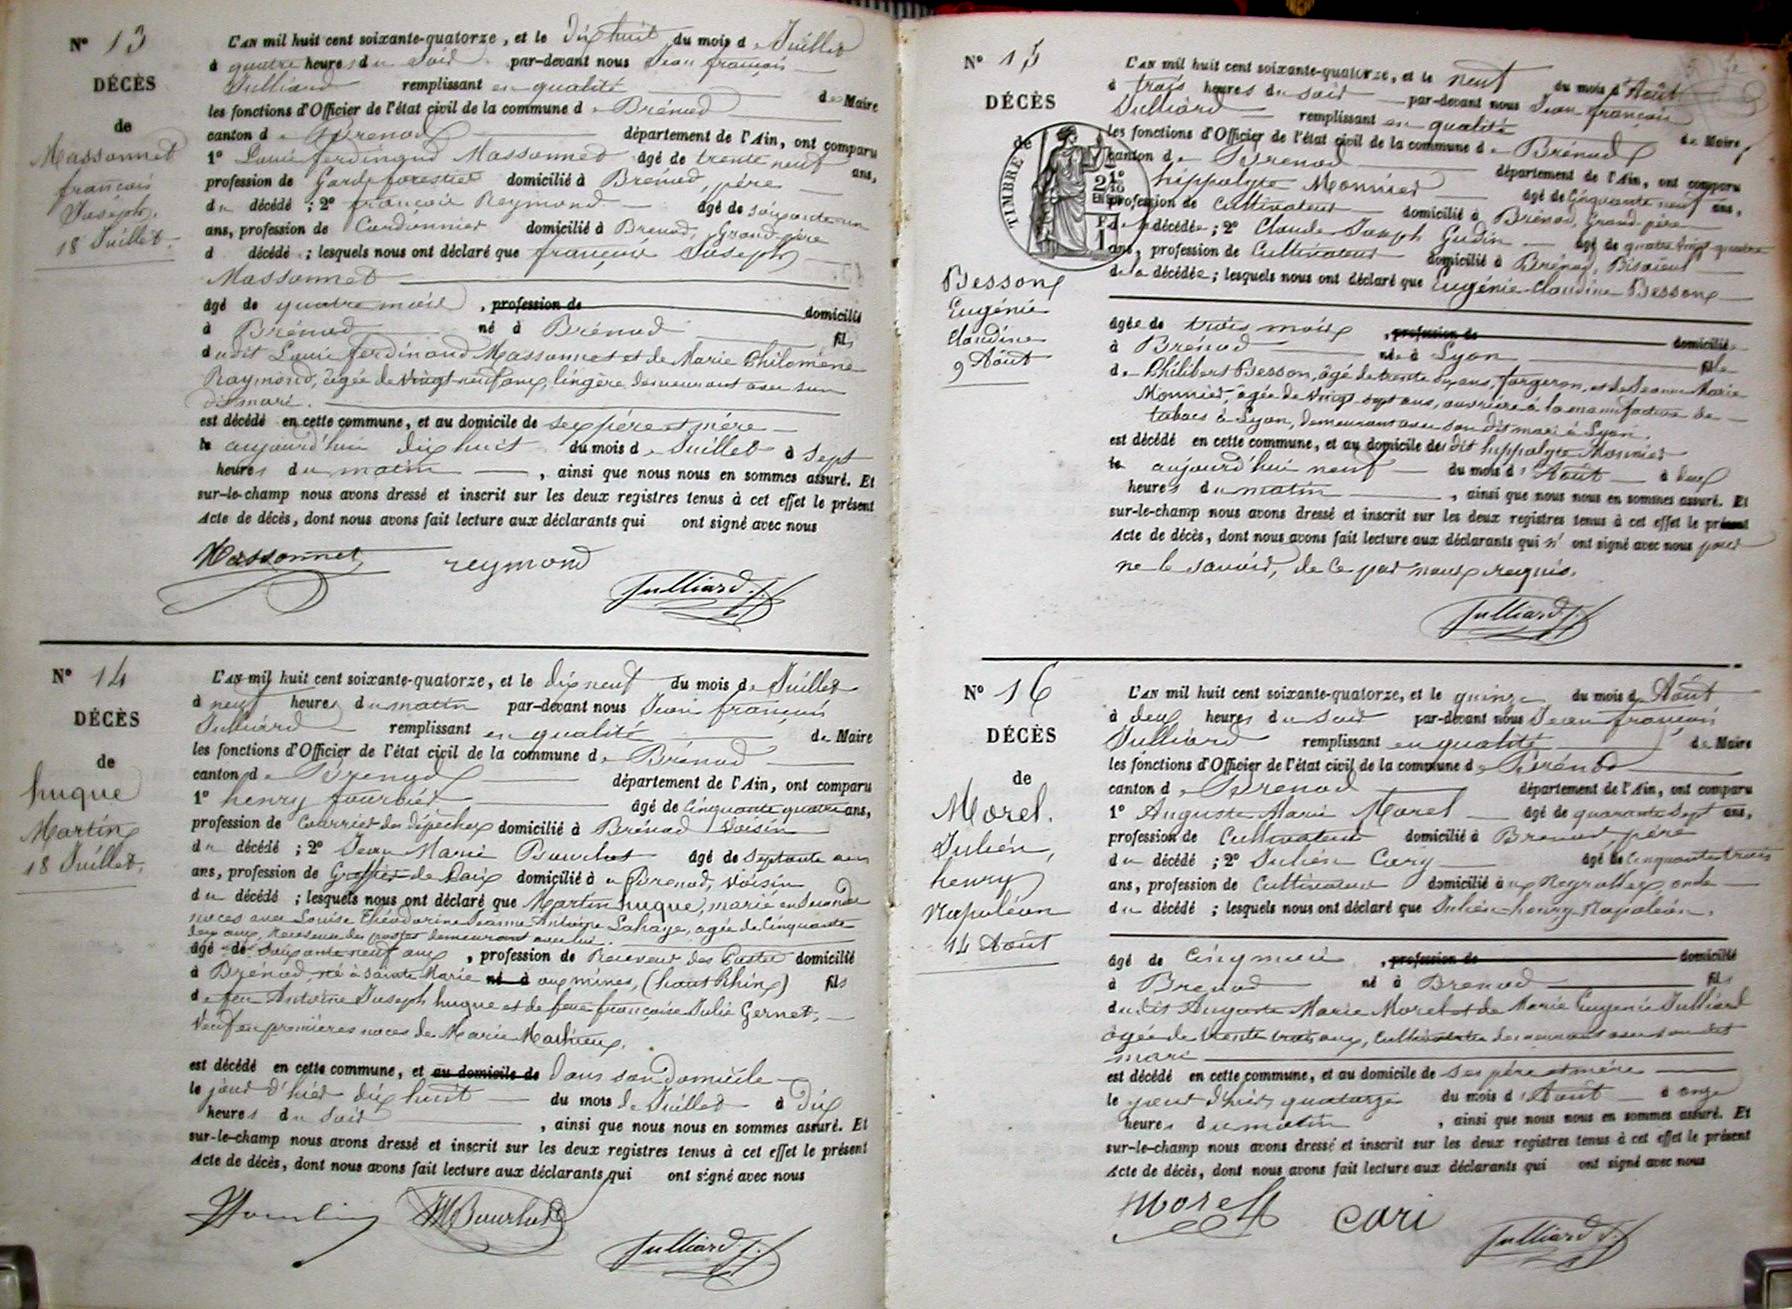 N° 13
DÉCÈS
de
Massonnet
françois
Joseph.
18 Juillet.
L'AN mil huit cent soixante-quatorze, et le dix huit du mois de Juillet
à quatre heures du soir par-devant nous Jean françois
Julliard remplissant en qualité de Maire
les fonctions d'Officier de l'état civil de la commune de Brénod
canton de Brenod département de l'Ain, ont comparu
1° Louis ferdinand Massonnet âgé de trente neuf ans,
profession de Garde forestier domicilié à Brénod, père
du décédé ; 2° françois Reymond âgé de soixante un
ans, profession de Cordonnier domicilié à Brenod, Grand père
d décédé ; lesquels nous ont déclaré que françois Joseph
Massonnet
âgé de quatre mois, profession de domicilié
à Brénod né à Brénod fils
dudit Louis ferdinand Massonnet et de Marie Philomène
Raymond, âgée de vingt neuf ans, lingère demeurant avec son
dit mari.
est décédé en cette commune, et au domicile de ses père et mère
le aujourd'hui dix huit du mois de Juillet à sept
heures du matin, ainsi que nous nous en sommes assuré. Et
sur-le-champ nous avons dressé et inscrit sur les deux registres tenus à cet effet le présent
Acte de décès, dont nous avons fait lecture aux déclarants qui ont signé avec nous
Massonnet reymond
Julliard J. f
N° 14
DÉCÈS
de
huque
Martin
18 Juillet.
L'AN mil huit cent soixante-quatorze, et le dix neuf du mois de Juillet
à neuf heures du matin par-devant nous Jean françois
Julliard remplissant en qualité de Maire
les fonctions d'Officier de l'état civil de la commune de Brénod
canton de Brenod département de l'Ain, ont comparu
1° henry fourbier âgé de Cinquante quatre ans,
profession de Courrier des dépêches domicilié à Brénod Voisin
du décédé ; 2° Jean Marie Bourbat âgé de Septante ans
ans, profession de Greffier de Paix domicilié à Brenod, Voisin
du décédé ; lesquels nous ont déclaré que Martin huque, marié en seconde
noces avec Louise Théodorine Jeanne Antoine Lahaye, agée de Cinquante
deux ans, Receveuse des postes demeurant avec lui.
âgé de Soixante neuf ans, profession de Receveur des Postes domicilié
à Brénod, né à Sainte Marie né à aux mines, (haut Rhin) fils
de feu Antoine Joseph huque et de feue françoise Julie Gernet,
Veuf en premières noces de Marie Mathieux.
est décédé en cette commune, et au domicile de dans son domicile
le jour d'hier dix huit du mois de Juillet à Dix
heures du Soir, ainsi que nous nous en sommes assuré. Et
sur-le-champ nous avons dressé et inscrit sur les deux registres tenus à cet effet le présent
Acte de décès, dont nous avons fait lecture aux déclarants qui ont signé avec nous
Julliard J. f
N° 15
DÉCÈS
de
TIMBRE
Besson
Eugénie
Claudine
9 Août
L'AN mil huit cent soixante-quatorze, et le neuf du mois d'Août
à trois heures du soir par-devant nous Jean françois
Julliard remplissant en qualité de Maire
les fonctions d'Officier de l'état civil de la commune de Brénod
canton de Brenod département de l'Ain, ont comparu
1° hippolyte Monnier âgé de Cinquante neuf ans,
profession de Cultivateur domicilié à Brénod, Grand père
de la décédée ; 2° Claude Joseph Gudin âgé de quatre vingt quatre
ans, profession de Cultivateur domicilié à Brénod, Bisaïeul
de la décédée ; lesquels nous ont déclaré que Eugénie Claudine Besson
âgée de trois mois, profession de domiciliée
à Brénod née à Lyon fille
de Philibert Besson, âgé de trente six ans, forgeron, et de Jeanne Marie
Monnier, âgée de vingt sept ans, ouvrière à la manufacture de
tabacs à Lyon, demeurant avec son dit mari à Lyon.
est décédé en cette commune, et au domicile dudit hippolyte Monnier
le aujourd'hui neuf du mois d'Août à deux
heures du matin, ainsi que nous nous en sommes assuré. Et
sur-le-champ nous avons dressé et inscrit sur les deux registres tenus à cet effet le présent
Acte de décès, dont nous avons fait lecture aux déclarants qui n'ont signé avec nous pour
ne le savoir, de ce par nous requis.
Julliard J. f
N° 16
DÉCÈS
de
Morel.
Julien,
henry
Napoléon
14 Août
L'AN mil huit cent soixante-quatorze, et le quinze du mois d'Août
à deux heures du soir par-devant nous Jean françois
Julliard remplissant en qualité de Maire
les fonctions d'Officier de l'état civil de la commune de Brénod
canton de Brenod département de l'Ain, ont comparu
1° Auguste Marie Morel âgé de quarante sept ans,
profession de Cultivateur domicilié à Brenod, père
du décédé ; 2° Julien Cary âgé de Cinquante trois
ans, profession de Cultivateur domicilié aux Neyrolles, oncle
du décédé ; lesquels nous ont déclaré que Julien henry Napoléon.
âgé de Cinq mois, profession de domicilié
à Brenod né à Brenod fils
dudit Auguste Marie Morel et de Marie Eugenie Julliard
âgée de trente trois ans, Cultivatrice demeurant avec son dit
mari
est décédé en cette commune, et au domicile de ses père et mère
le jour d'hier quatorze du mois d'Août à onze
heures du matin, ainsi que nous nous en sommes assuré. Et
sur-le-champ nous avons dressé et inscrit sur les deux registres tenus à cet effet le présent
Acte de décès, dont nous avons fait lecture aux déclarants qui ont signé avec nous
Morel cari
Julliard J. f